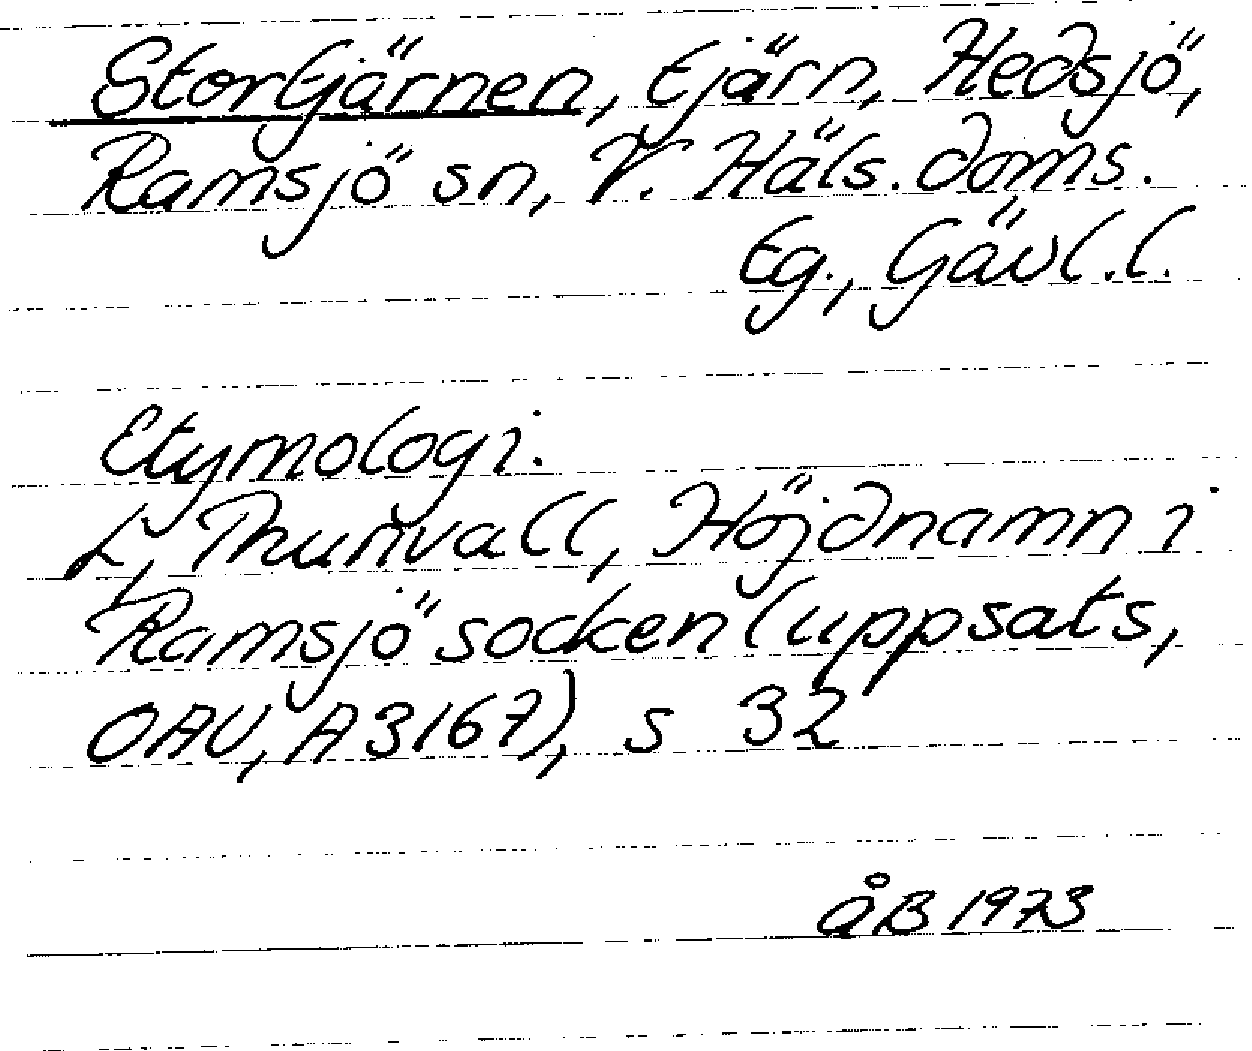 Stortjärnen, tjärn, Hedsjö,
Ramsjö sn, V. Häls. doms.
Eg., Gävl.l.
Etymologi.
L, Thunvall, Höjdnamn i
Ramsjö socken (uppsats,
OAU, A3167), s 32
åB 1973